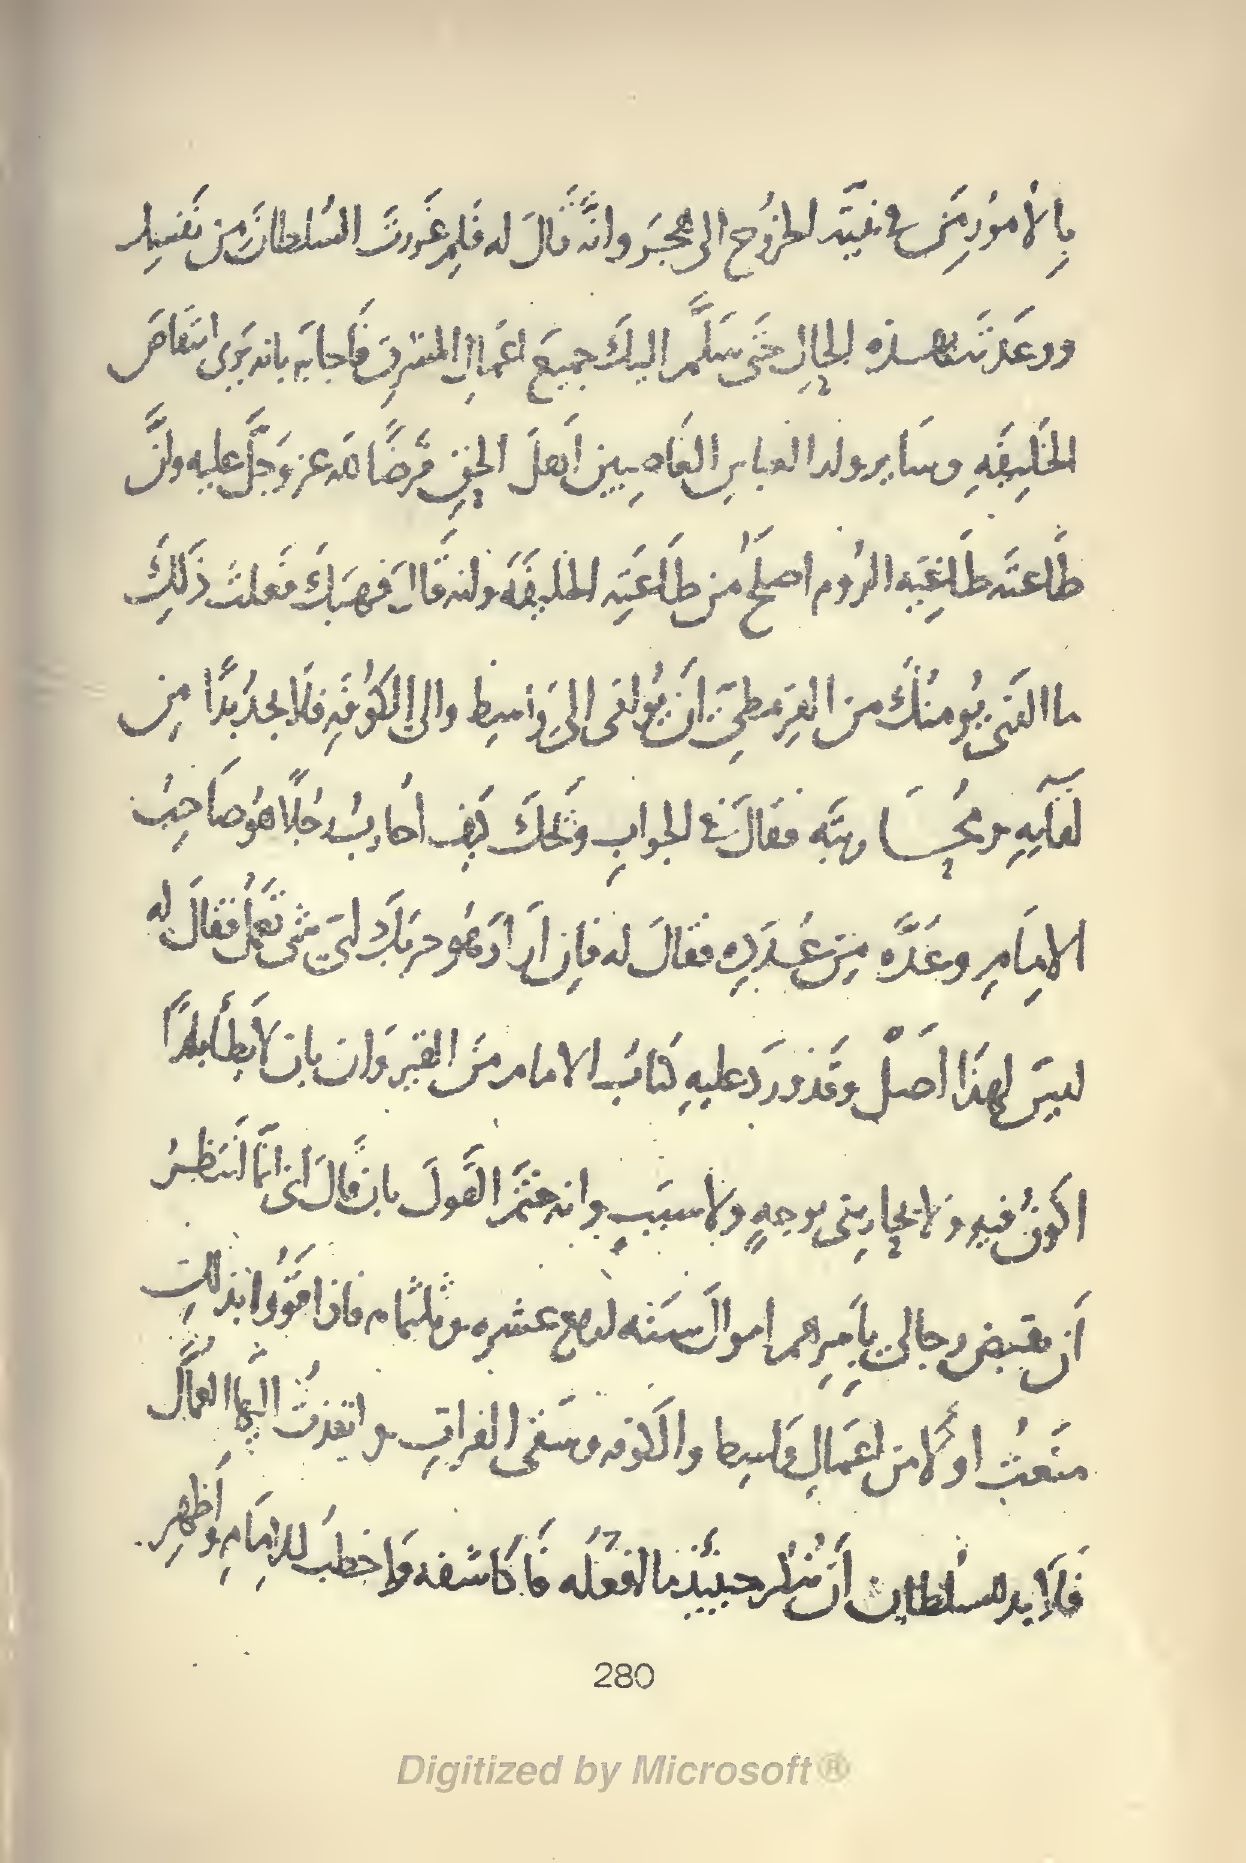 بالامور مَن في نيته الخروج الى هجر وانّه قالَ له فلِم غَررتَ السُلطانَ من نَفسِك
ووعَدته بهذه الحالِ حَتَى سَلَّم اليكَ جميعَ اعمَالِ المشرِقِ فاجابَه بانه يَرى انتقاضَ
الخَلِيفَهِ وسَاير ولد العباسِ الغَاصِبينَ اَهلَ الحقِ فَرضًا لله عز وجَلَّ عليه وانَّ
طَاعتَه طَاغِيَه الرُوم اصلح من طَاعَتِه الخليفَه وانه قَال فهبكَ فعلتَ ذَلِكَ
ما الذى يُومنُكَ من القِرمطِىّ اَن يُوافى الىَ وَاسِط والى الكُوفَهِ فلا تجدُ بُدًا مِن
لقايِهِ ومُحَاربتِه فقالَ في الجوابِ ويَحكَ كَيفَ اُحاربُ رَجُلًا هُو صَاحِبُ
الامَامِ وعُدَّه مِن عُدَدِه فقالَ له فاِن اَرادَ هُو حربَكَ اىّ شىٍ تَعمَلُ فقالَ له
ليسَ لهذَا اَصلٌ وقَد وَردَ عليهِ كتابُ الامام من القيروَان بان لا يَطأ بلدًا
اكونُ فيهِ ولا يحاربنى بوجهٍ ولا سَبَبٍ وانه ختَم القَولَ بان قالَ انى انّمَا اَنتَظِرُ
اَن يقبض رجالى باَسرِهم اموالَ سَنَه اربع عشره وثلثمايه فاذا قوُوا بذلكِ
منَعتُ اولًا من اعمَالِ وَاسِط والكوفه وسَقى الفراتِ وانفَذتُ اليهَا العُمَّال
فَلَا بد للسُلطانِ اَن يُنكر حينَيذ ما افعَله فاكَاشفه وَاخطبَ للاِمَامِ واَظهِر
280
Digitized by Microsoft®